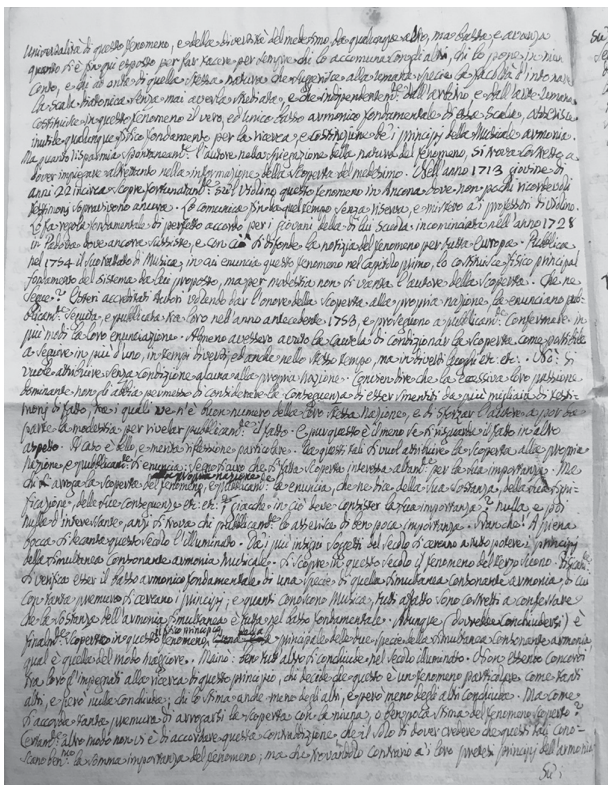 Universalità di questo fenomeno, e della diversità del medesimo da qualunque altro, ma basta e avanza
quanto si è fin qui esposto per far tacere per sempre chi lo accomuna con gli altri, chi lo pone in niun
conto, e chi ad onta di quella stessa natura che suggerisce alla umana specie la facoltà d'intonare
la scala diatonica senza mai averla studiata, e che indipendentem.te dall'arbitrio e dall'arte umana
costituisce in questo fenomeno il vero, ed unico basso armonico fondamentale di essa scala,
inutile qualunque fisico fondamento per la ricerca, e costituzione de' i principj della Musicale armonia.
Ma quanto risparmia spontaneam.te l'autore nella spiegazione della natura del fenomeno, si trova costretto a
dover impiegare altrettanto nella informazione della scoperta del medesimo. Nell'anno 1713 giovine di
anni 22 incirca scopre fortunatam.te sul Violino questo fenomeno in Ancona dove non pochi ricordevoli
testimonj sopravivono ancora. Lo comunica fin da quel tempo senza riserva, e mistero a' professori di Violino.
Lo fa regola fondamentale di perfetto accordo per i giovani della di lui scuola, incominciata nell'anno 1728
in Padova dove ancora sussiste, e con ciò si difonde la notizia del fenomeno per tutta Europa. Pubblica
nel 1754 il suo trattato di Musica; in cui enuncia questo fenomeno nel Capitolo primo, lo costituisce fisico principal
fondamento del sistema da lui proposto, ma per modestia non si vanta l'autore della scoperta. Che ne
segue? Esteri accreditati Autori volendo dar l'onore della scoperta alla propria nazione, la enunciano pub-
blicam.te seguita, e pubblicata tra loro nell'anno antecedente 1753, e proseguono a pubblicam.te confermare in
più modi la loro enunciazione. Almeno avessero avuto la cautela di condizionar la scoperta, come possibile
a seguire in più d'uno, in tempi diversi, ed anche nello stesso tempo, ma in diversi luoghi etc. etc. Nò: si
vuole attribuire senza condizione alcuna alla propria nazione. Convien dire che la eccessiva loro passione
dominante non gli abbia permesso di considerare la conseguenza di esser smentiti da più migliaja di testi-
monj di fatto, tra i quali ve n'è buon numero della loro stessa Nazione, e di sforzar l'autore a por da
parte la modestia per rivelar pubblicam.te il fatto. E pur questo è il meno se si riguarda il fatto in altro
aspetto. Il caso è bello, e merita riflessione particolare. Da questi tali si vuol attribuire la scoperta alla propria
nazione, e pubblicam.te si enuncia: segno sicuro che si fatta scoperta interessa assaiss.mo per la sua importanza. Ma
chi si arroga la scoperta del fenomeno, e pubblicam.te la enuncia, che ne dice della sua sostanza, della sua signi-
ficazione, delle sue conseguenze etc. etc.? giacchè in ciò deve consister la sua importanza? nulla, e poi
nulla d'interessante, anzi si trova chi pubblicam.te lo asserisce di ben poca importanza. Non è che a piena
bocca si decanta questo secolo l'illuminato. Da' i più insigni soggetti del secolo si cercano a tutto potere i principj
della simultanea consonante armonia musicale. Si scopre in questo secolo il fenomeno del terzo suono.
si verifica esser il basso armonico fondamentale di una specie di quella simultanea consonante armonia, di cui
con tanta premura si cercano i principj; e quanti conoscono Musica, tutti affatto sono costretti a confessare
che la sostanza dell'armonia simultanea è tutta nel basso fondamentale. Dunque (dovrebbe concludersi) è
finalm.te scoperto in questo fenomeno il fisico principio della principale delle due specie della simultanea consonante armonia
qual è quella del modo maggiore. Maino: ben tutt'altro si conclude nel secolo illuminato. Non essendo concordi
tra loro gl'impegnati alla ricerca di questo principio, chi decide che questo è un fenomeno particolare come tanti
altri, e però nulla conclude; chi lo stima anche meno degli altri, e però meno degli altri concluda. Ma come
si accorda tanta premura di arrogarsi la scoperta con la niuna, o ben poca stima del fenomeno scoperto?
Certam.te altro modo non vi è di accordare questa contradizione che il solo di dover credere che questi tali cono-
scano ben.mo la somma importanza del fenomeno; ma che trovandolo contrario a' i loro pretesi principj dell'armonia
Su i